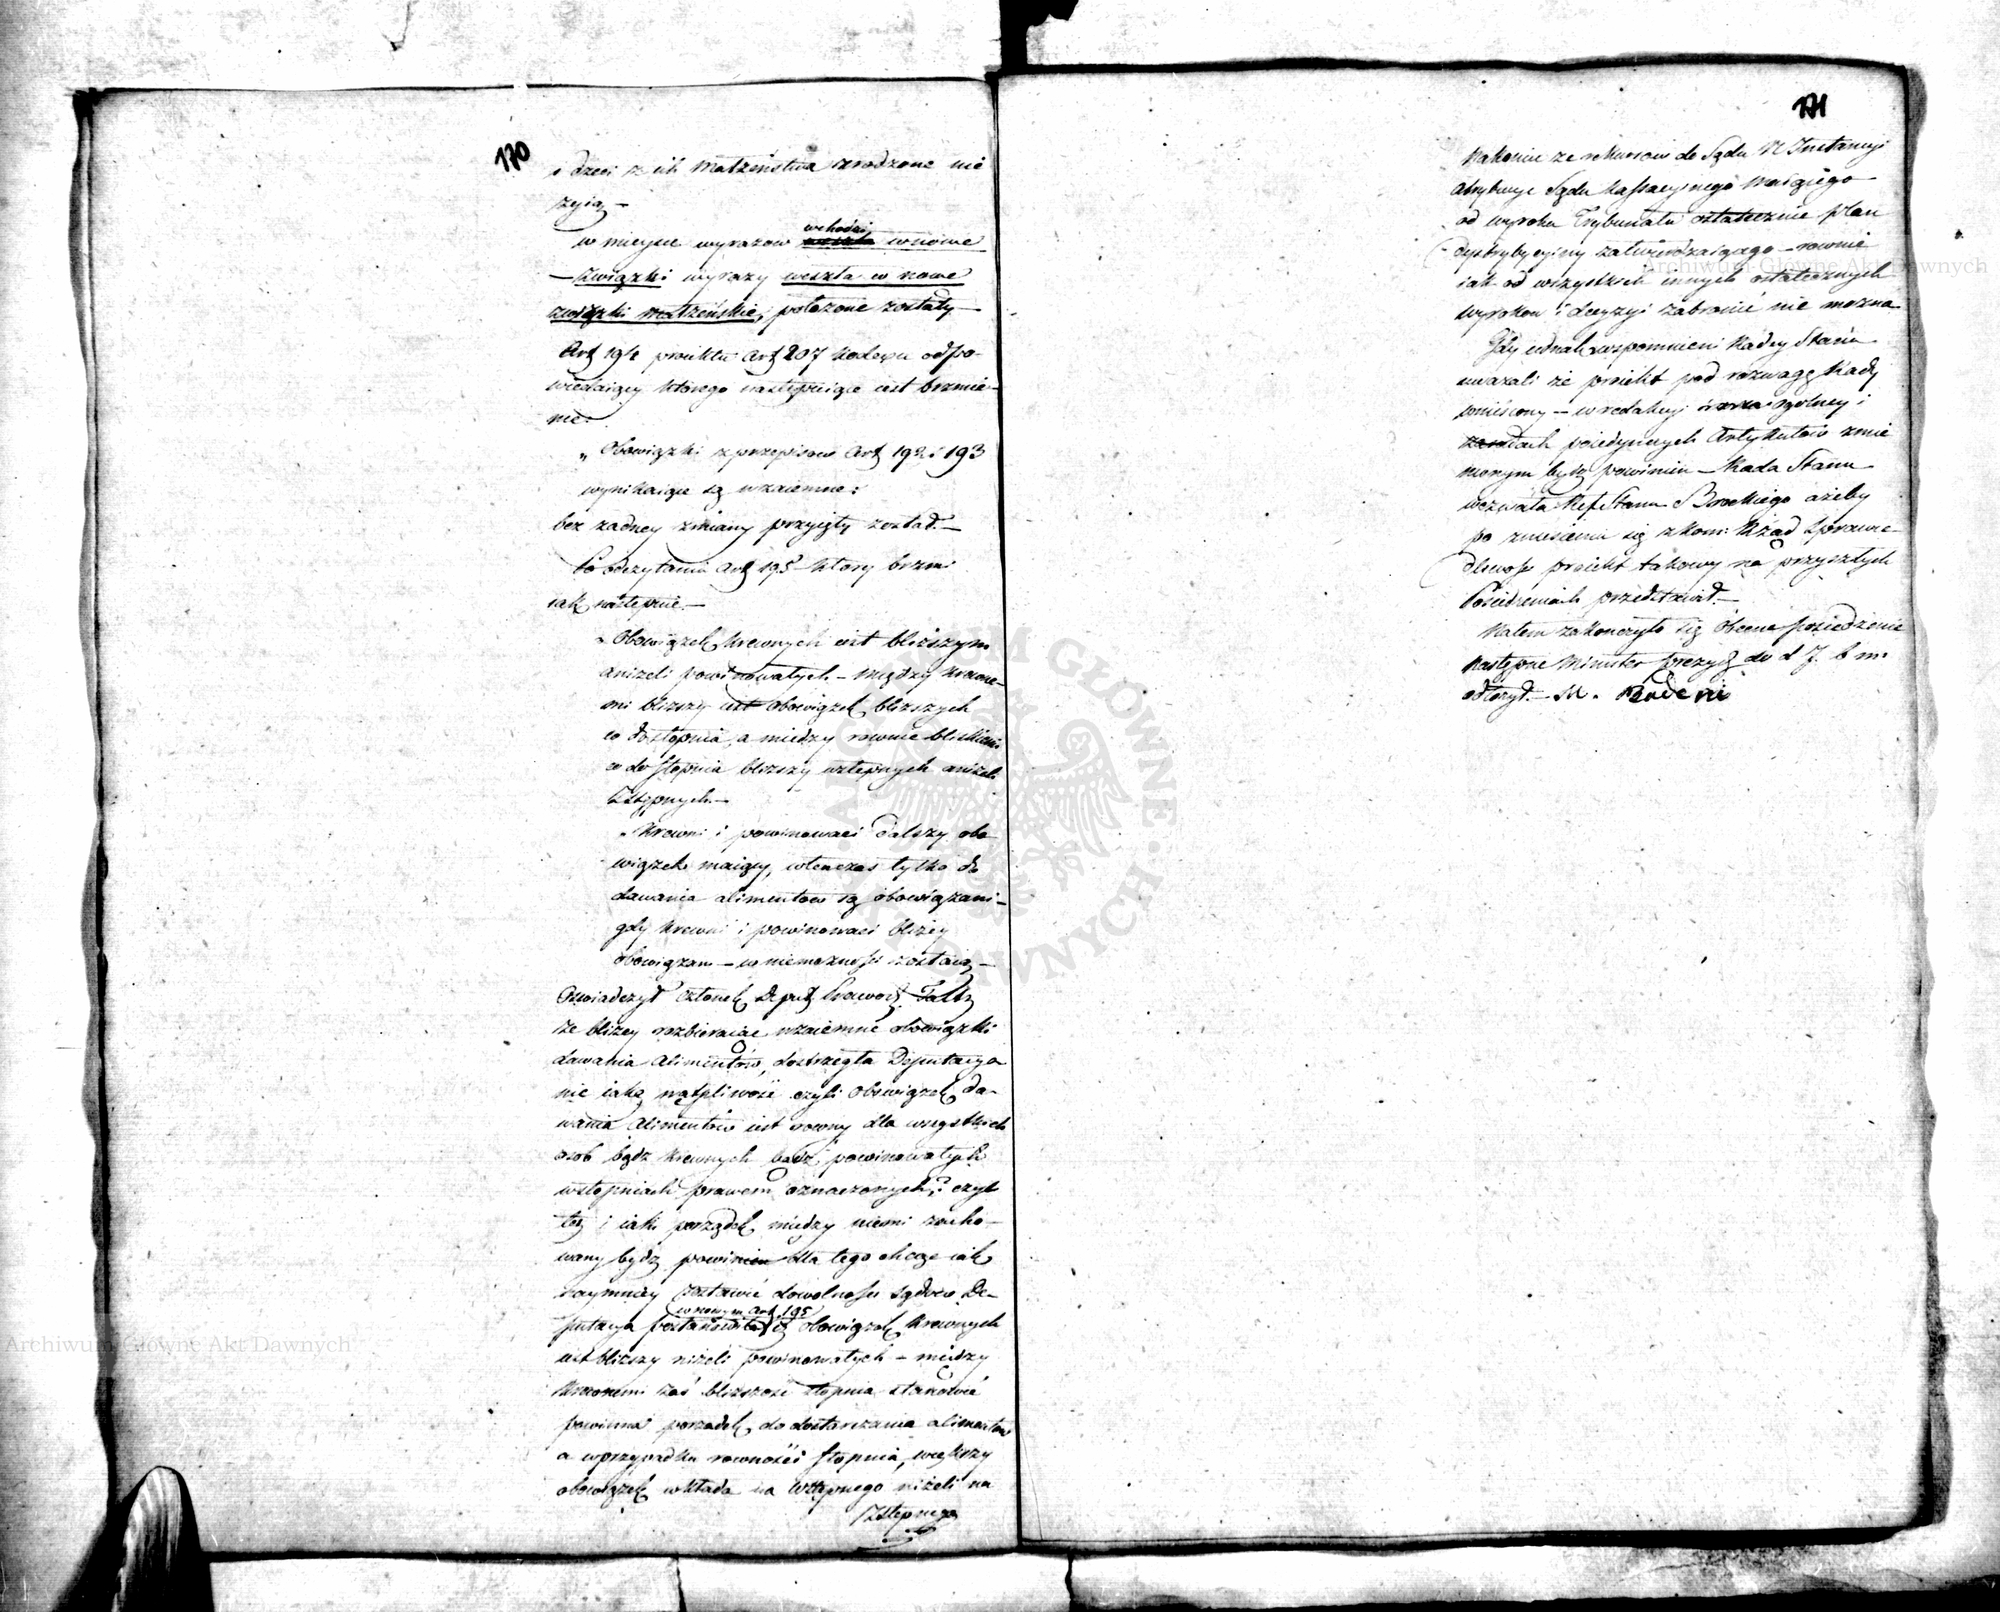 170
i dzieci z ich małżeństwa zrodzone nie
żyią —
w mieysce wyrazow wchodzi wnowe
związki wyrazy weszła w nowe
związki małżeńskie, położone zostały —
Art 194 proiektu art 207 kodexu odpo-
wiadaiący ktorego następuiące iest brzmie-
nie:
„ Obowiązki z przepisow Art 192 i 193
wynikaiące są wzaiemne:
bez żadney zmiany przyięty został. —
Po odczytaniu Art 195 ktory brzmi
iak następnie. —
„ Obowiązek krewnych iest bliższym
aniżeli powinowatych — między krewne-
mi bliższy iest obowiązek bliższych
co do stopnia, a między rownie bliskiemi
co do stopnia bliższy wstępnych aniżeli
zstępnych. —
„ Krewni i powinowaci dalszy obo-
wiązek maiący, wtenczas tylko do
dawania alimentow są obowiązani —
gdy krewni i powinowaci bliżey
obowiązani — w niemożności zostaią —
Oświadczył członek Deput Prawod.
że bliżey rozbieraiąc wzaiemne obowiązki
dawania Alimentów, dostrzegła Deputacya
nie iaką wątpliwość czyli obowiązek da-
wania Alimentów iest rowny dla wszystkich
osob bądz krewnych bądź powinowatych
wstopniach prawem oznaczonych? czyli
też i iaki porządek między niemi zacho-
wany bydz powinien dla tego chcąc iak
naymniey zostawić dowolności sądów De-
w nowym art. 195
putacya postanowiła iż obowiązek krewnych
iest bliższy niżeli powinowatych — między
krewnemi zaś bliższość stopnia stanowić
powinna porządek do dostarczania alimentow
a wprzypadku rowności stopnia, większy
obowiązek wkłada na wstępnego niżeli na
Zstępnego
171
Nakoniec że rekursow do Sądu N Instancyi
Atrybucye Sądu Kassacyinego maiącego
od wyroku Trybunału ostatecznie plan
dystrybycyiny zatwierdzaiącego — rownie
iak od wszystkich innych ostatecznych
wyrokow i decyzyi zabronić nie można
Gdy iednak wspomnieni Radcy Stanu
uważali że proiekt pod rozwagę Rady
wniesiony — w redakcyi ogolney i
zasadach poiedynczych Artykułow zmie-
nionym bydź powinien — Rada Stanu
wezwała Ref Stanu Brockiego ażeby
po zniesieniu się z Kom: Rząd Sprawie-
dliwości proiekt takowy na przyszłych
Posiedzeniach przedstawił. —
Na tem zakończyło się obecne posiedzenie
następne Minister Prezyd do d 7. b m:
odłożył. — M. Badeni
Archiwum Główne Akt Dawnych
Archiwum Główne Akt Dawnych